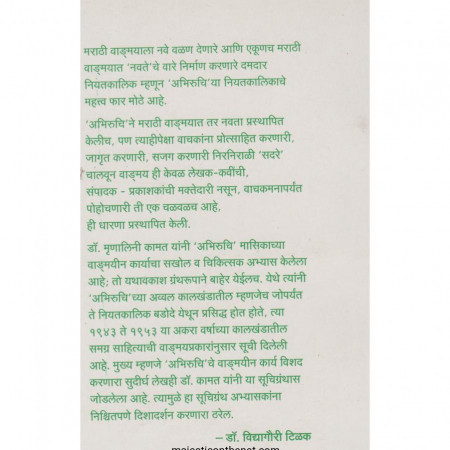 मराठी वाङ्मयाला नवे वळण देणारे आणि एकूणच मराठी
वाङ्मयात 'नवते'चे वारे निर्माण करणारे दमदार
नियतकालिक म्हणून 'अभिरुचि'या नियतकालिकाचे
महत्त्व फार मोठे आहे.
'अभिरुचि'ने मराठी वाङ्मयात तर नवता प्रस्थापित
केलीच, पण त्याहीपेक्षा वाचकांना प्रोत्साहित करणारी,
जागृत करणारी, सजग करणारी निरनिराळी 'सदरे'
चालवून वाङ्मय ही केवळ लेखक-कवींची,
संपादक - प्रकाशकांची मक्तेदारी नसून, वाचकमनापर्यंत
पोहोचणारी ती एक चळवळच आहे,
ही धारणा प्रस्थापित केली.
डॉ. मृणालिनी कामत यांनी 'अभिरुचि' मासिकाच्या
वाङ्मयीन कार्याचा सखोल व चिकित्सक अभ्यास केलेला
आहे; तो यथावकाश ग्रंथरूपाने बाहेर येईलच. येथे त्यांनी
'अभिरुचि'च्या अव्वल कालखंडातील म्हणजेच जोपर्यंत
ते नियतकालिक बडोदे येथून प्रसिद्ध होत होते, त्या
१९४३ ते १९५३ या अकरा वर्षाच्या कालखंडातील
समग्र साहित्याची वाङ्मयप्रकारांनुसार सूची दिलेली
आहे. मुख्य म्हणजे 'अभिरुचि'चे वाङ्मयीन कार्य विशद
करणारा सुदीर्घ लेखही डॉ. कामत यांनी या सूचिग्रंथास
जोडलेला आहे. त्यामुळे हा सूचिग्रंथ अभ्यासकांना
निश्चितपणे दिशादर्शन करणारा ठरेल.
– डॉ. विद्यागौरी टिळक
majesticonthenet.com